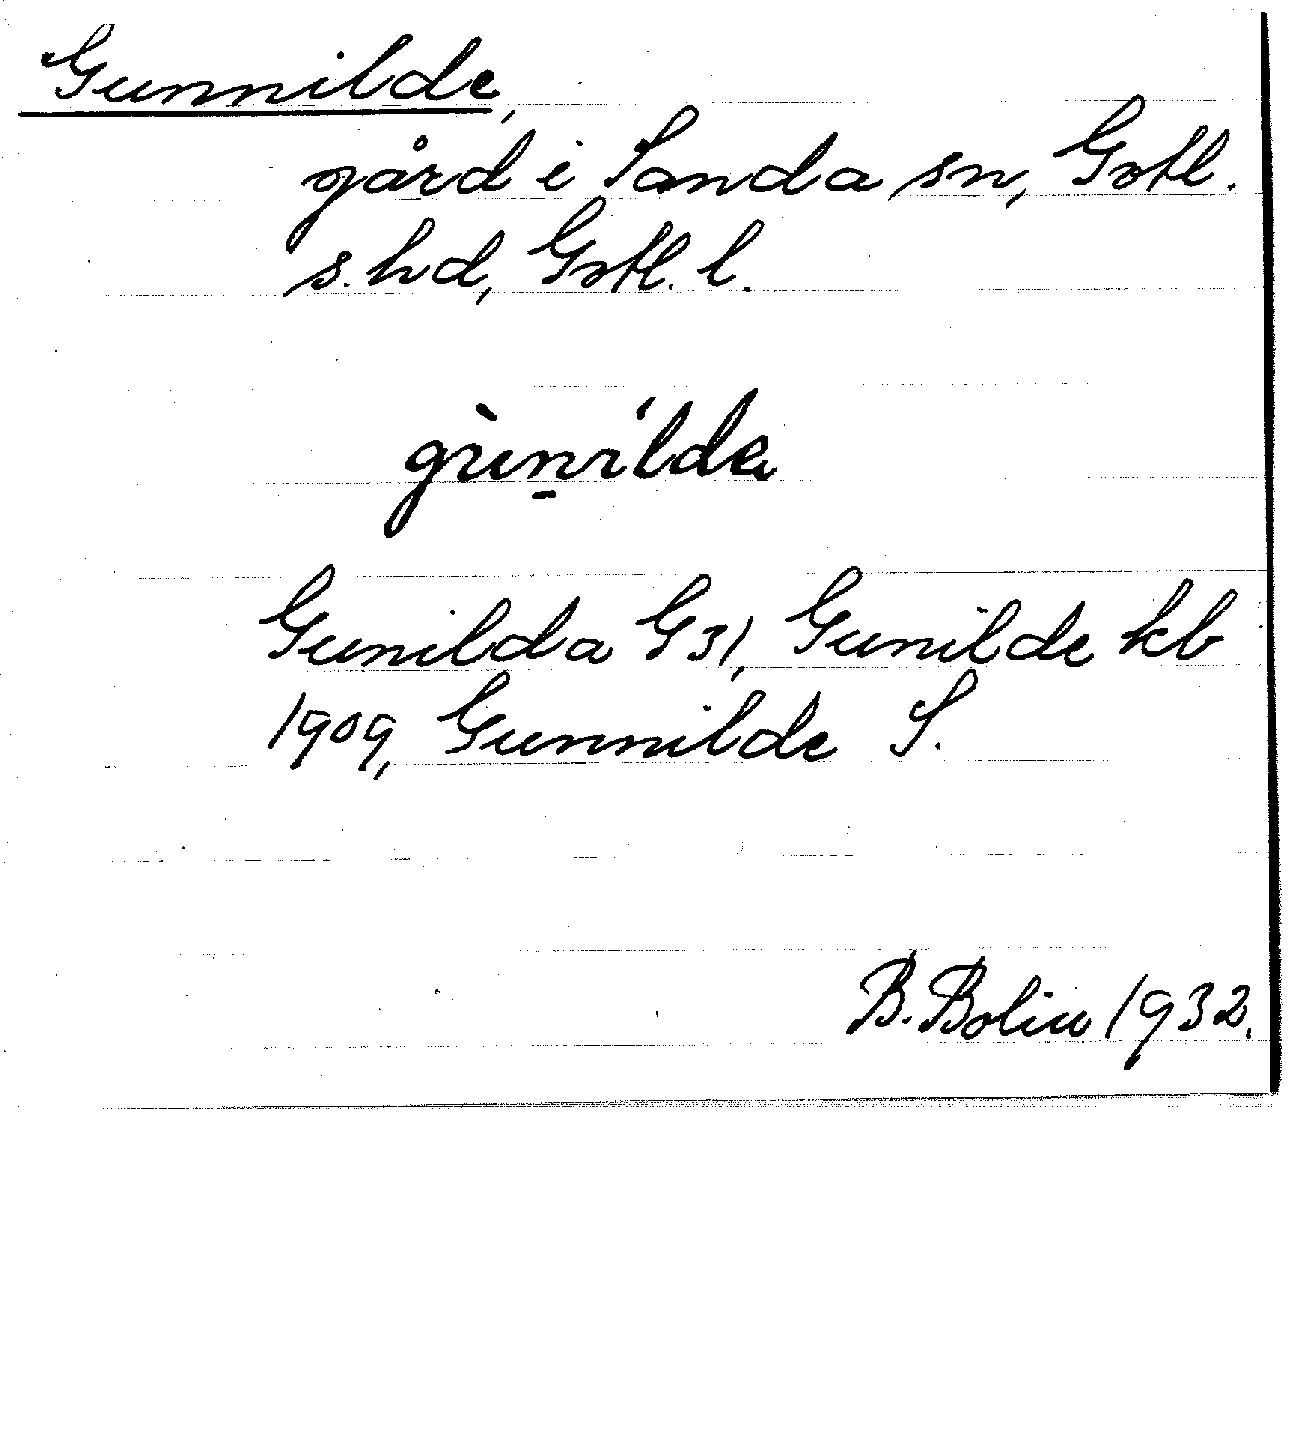 Gunnilde,
gård i Sanda sn, Gotl.
s. hd, Gotl. l.
gùn̠ílda
Gunilda G 31, Gunilde kb
1909, Gunnilde S.
B. Bolin 1932.